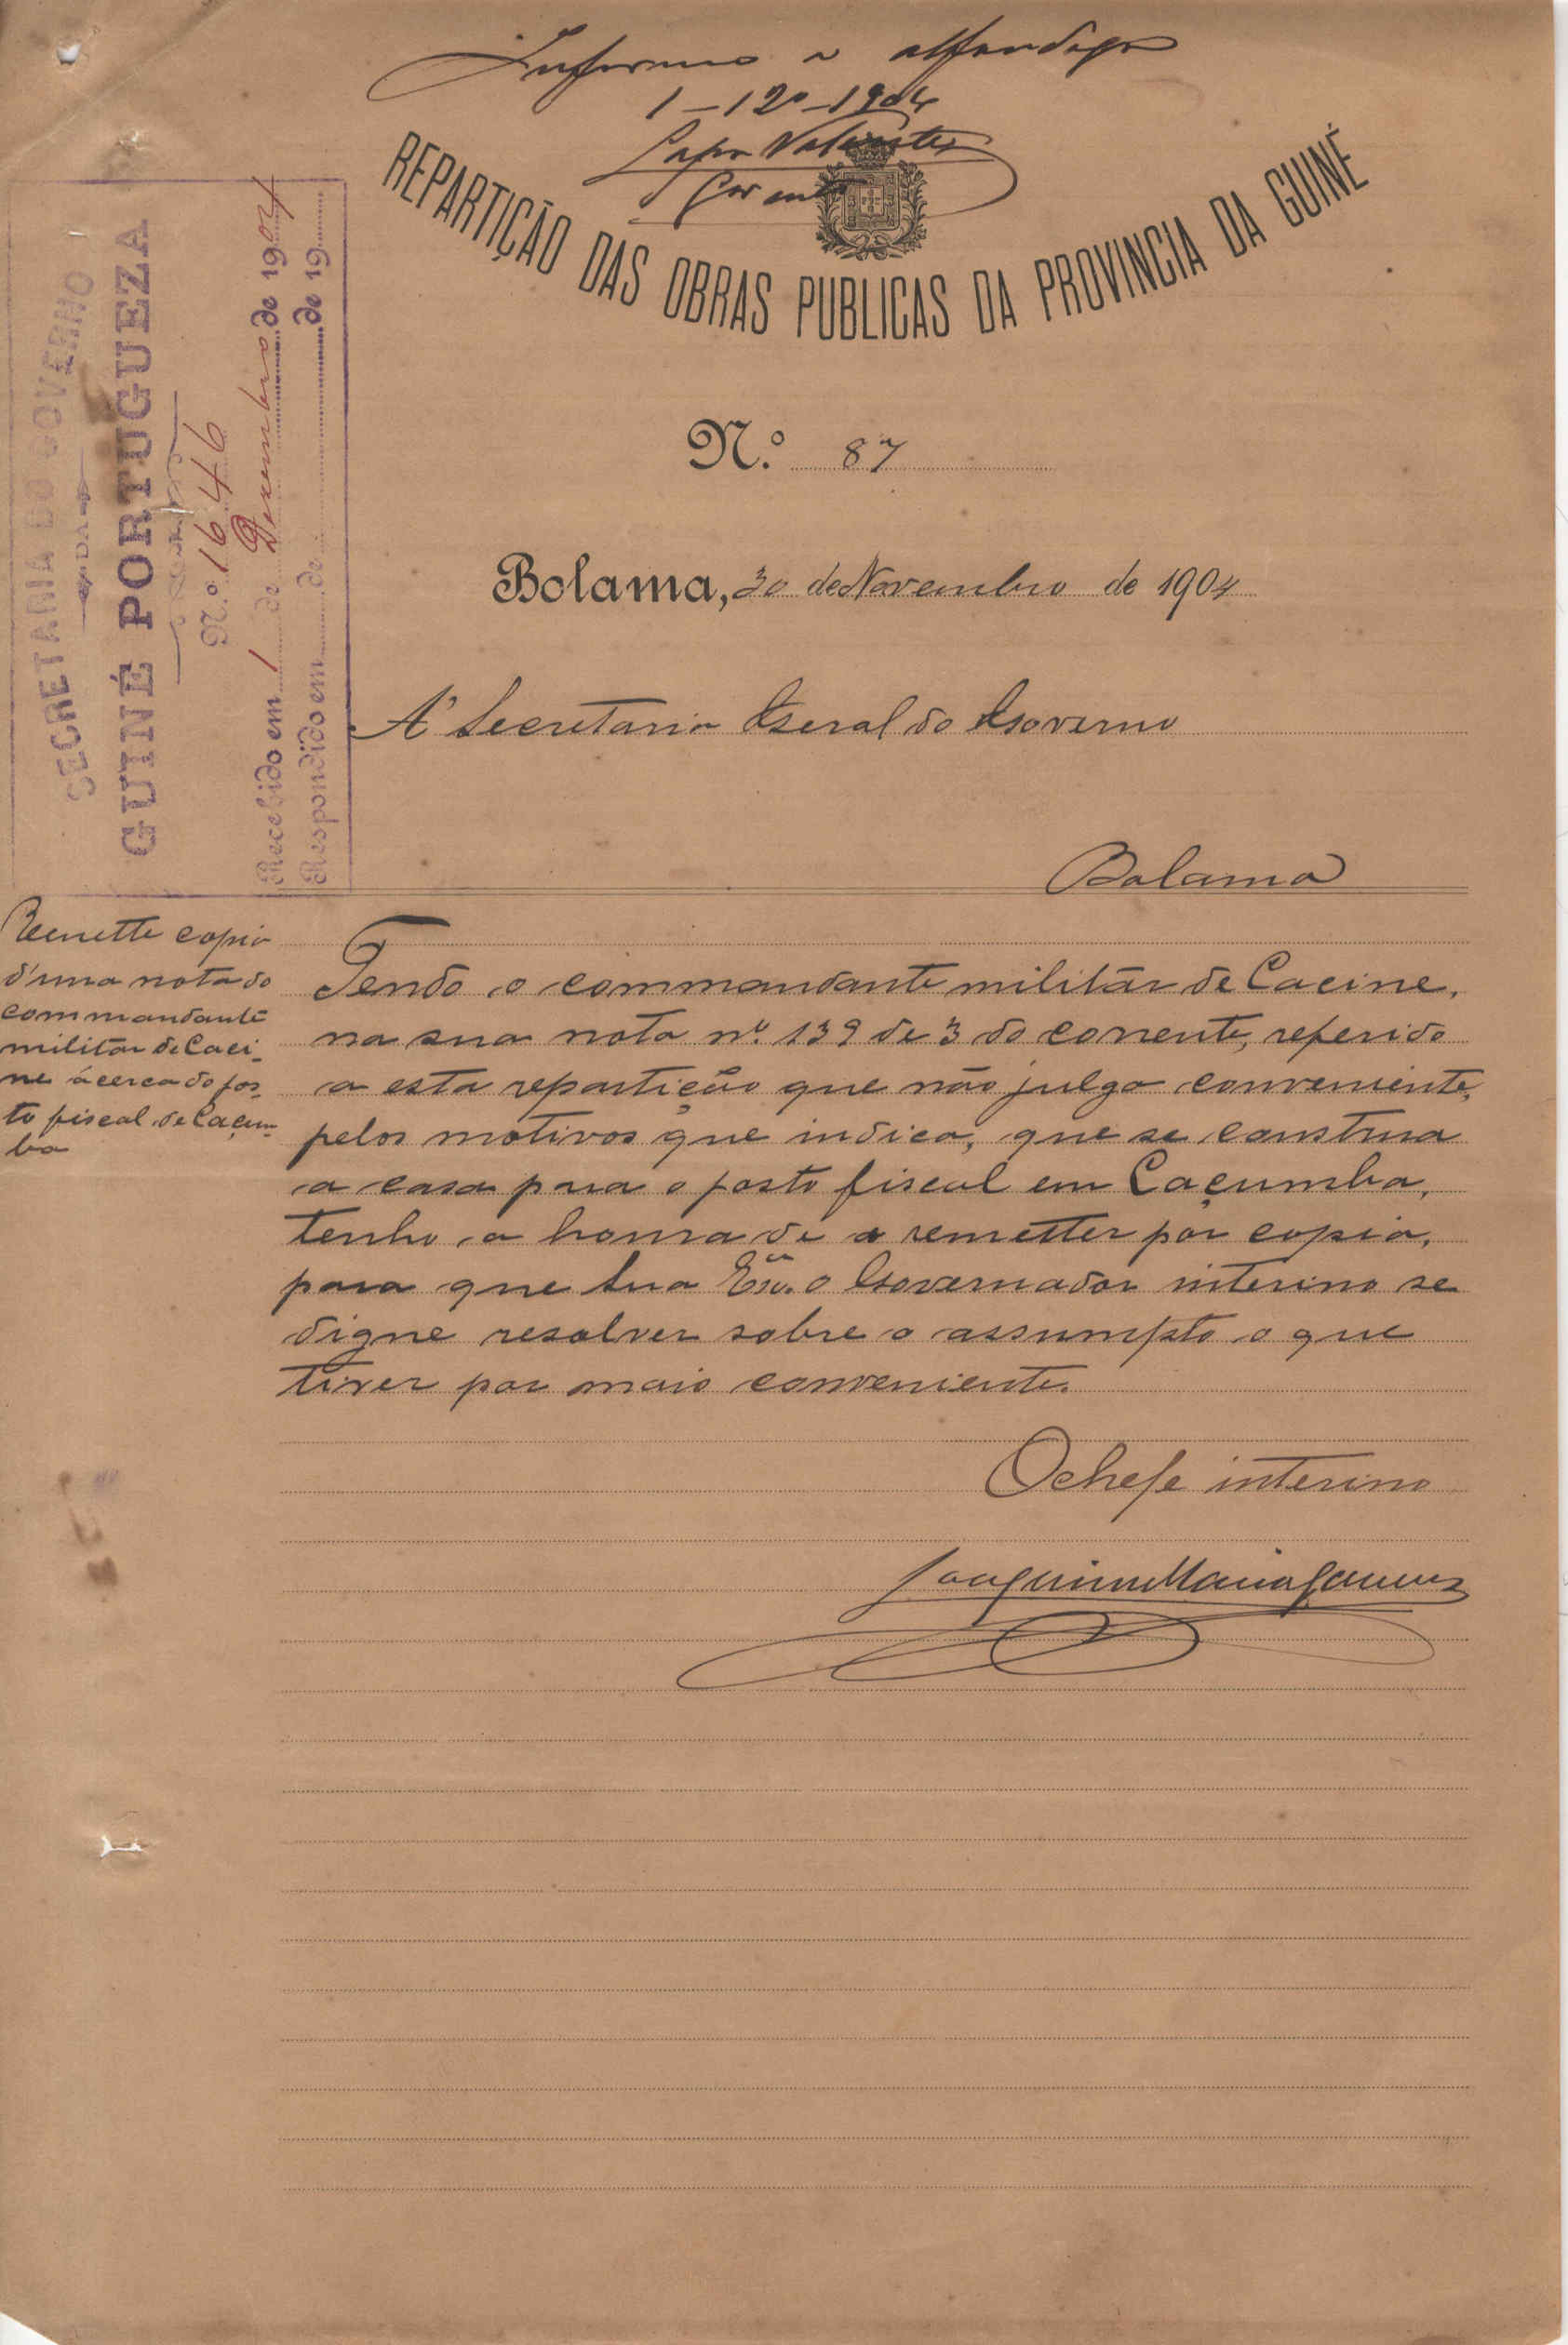 Informe a alfandega
1-12º-1904
Lapa Valente
REPARTIÇÃO DAS OBRAS PUBLICAS DA PROVINCIA DA GUINÉ
SECRETARIA DO GOVERNO
DA
GUINÉ PORTUGUEZA
N.º 1646
Recebido em 1 de Dezembro de 1904
Respondido em de de 19
N.º 87
Bolama, 30 de Novembro de 1904
Á Secretaria Geral do Governo
Bolama
Remette copia
d'uma nota do
commandante
militar de Caci-
ne ácerca do pos-
to fiscal de Caçum-
ba
Tendo o commandante militar de Cacine,
na sua nota nº. 139 de 3 do corrente, referido
a esta repartição que não julga conveniente,
pelos motivos que indica, que se construa
a casa para o posto fiscal em Caçumba,
tenho a honra de a remetter por copia,
para que Sua Exª. o Governador interino se
digne resolver sobre o assumpto o que
tiver por mais conveniente.
O chefe interino
Joaquim Maria